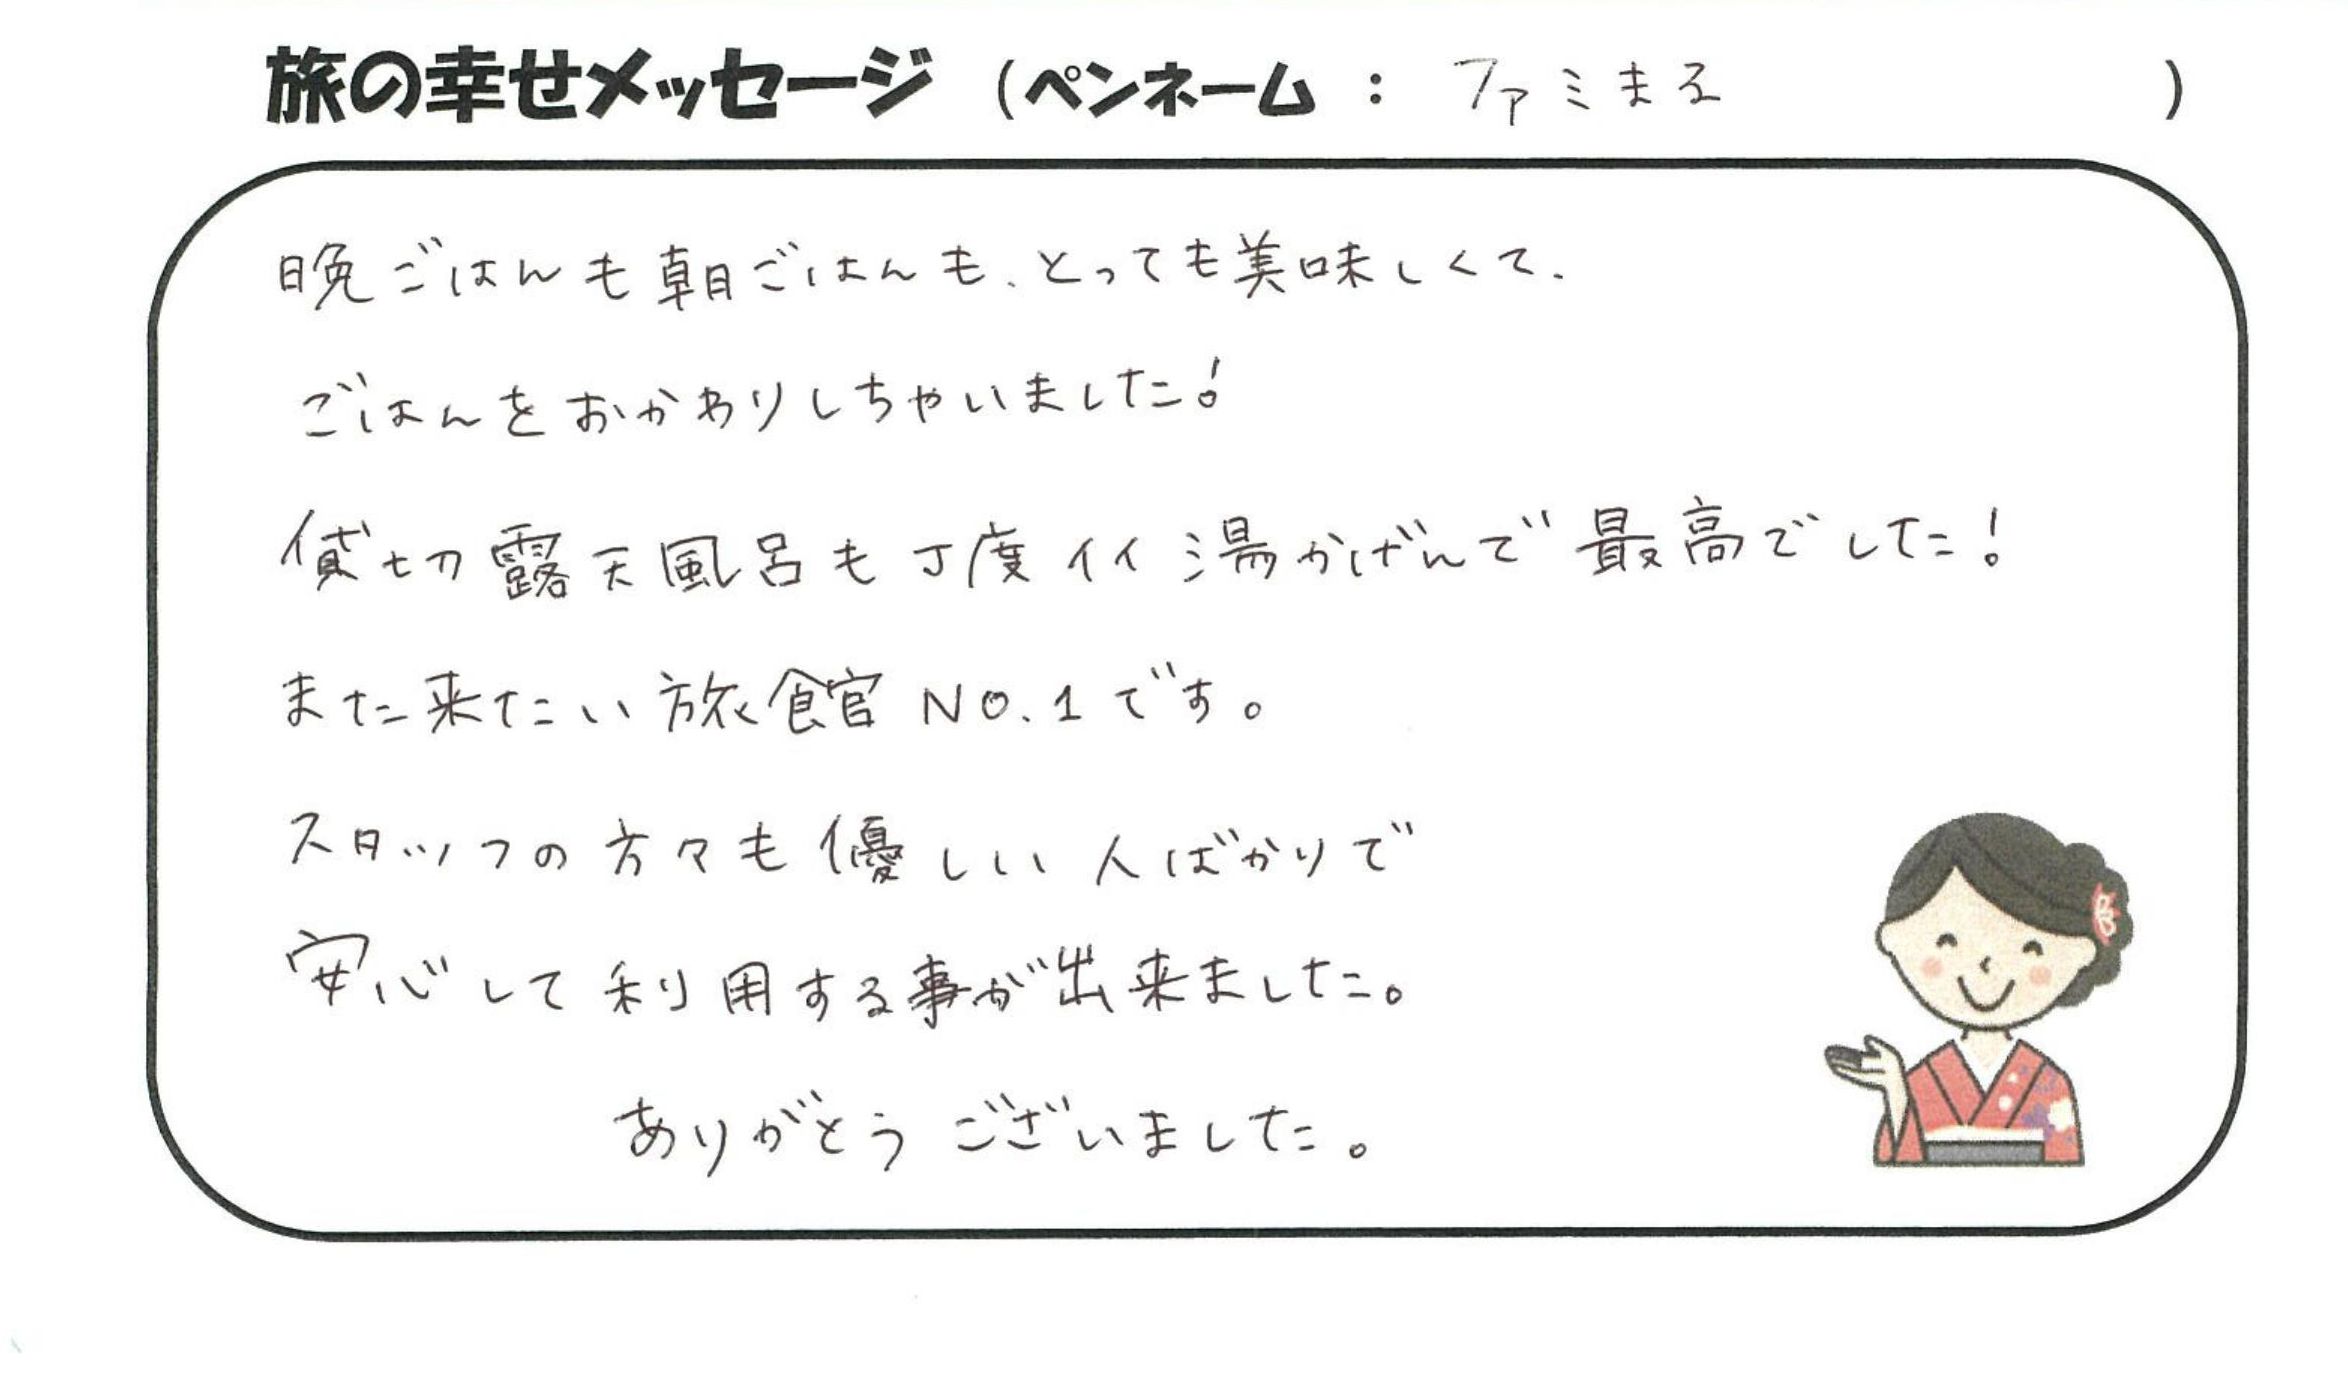 旅の幸せメッセージ (ペンネーム : ファミまる )
晩ごはんも朝ごはんも、とっても美味しくて、
ごはんをおかわりしちゃいました!
貸切露天風呂も丁度イイ湯かげんで最高でした!
また来たい旅館NO.1です。
スタッフの方々も優しい人ばかりで
安心して利用する事が出来ました。
ありがとうございました。